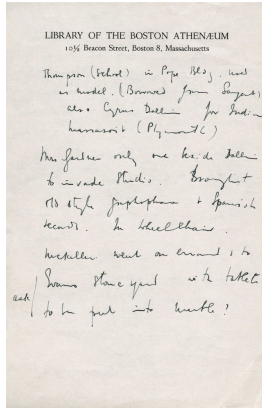 LIBRARY OF THE BOSTON ATHENÆUM
10½ Beacon Street, Boston 8, Massachusetts
Thompson (School) in Pope Bldg. used
as model. (Borrowed from Sargent)
also Cyrus Dallin for Indian
Massasoit (Plymouth)
Mrs Gardner only one beside Dallin
to invade Studio. Brought
old style graphophone & Spanish
records. In Wheelchair.
McKeller went on errand to
ask Evans Stone yard with tablets
to be put into marble?